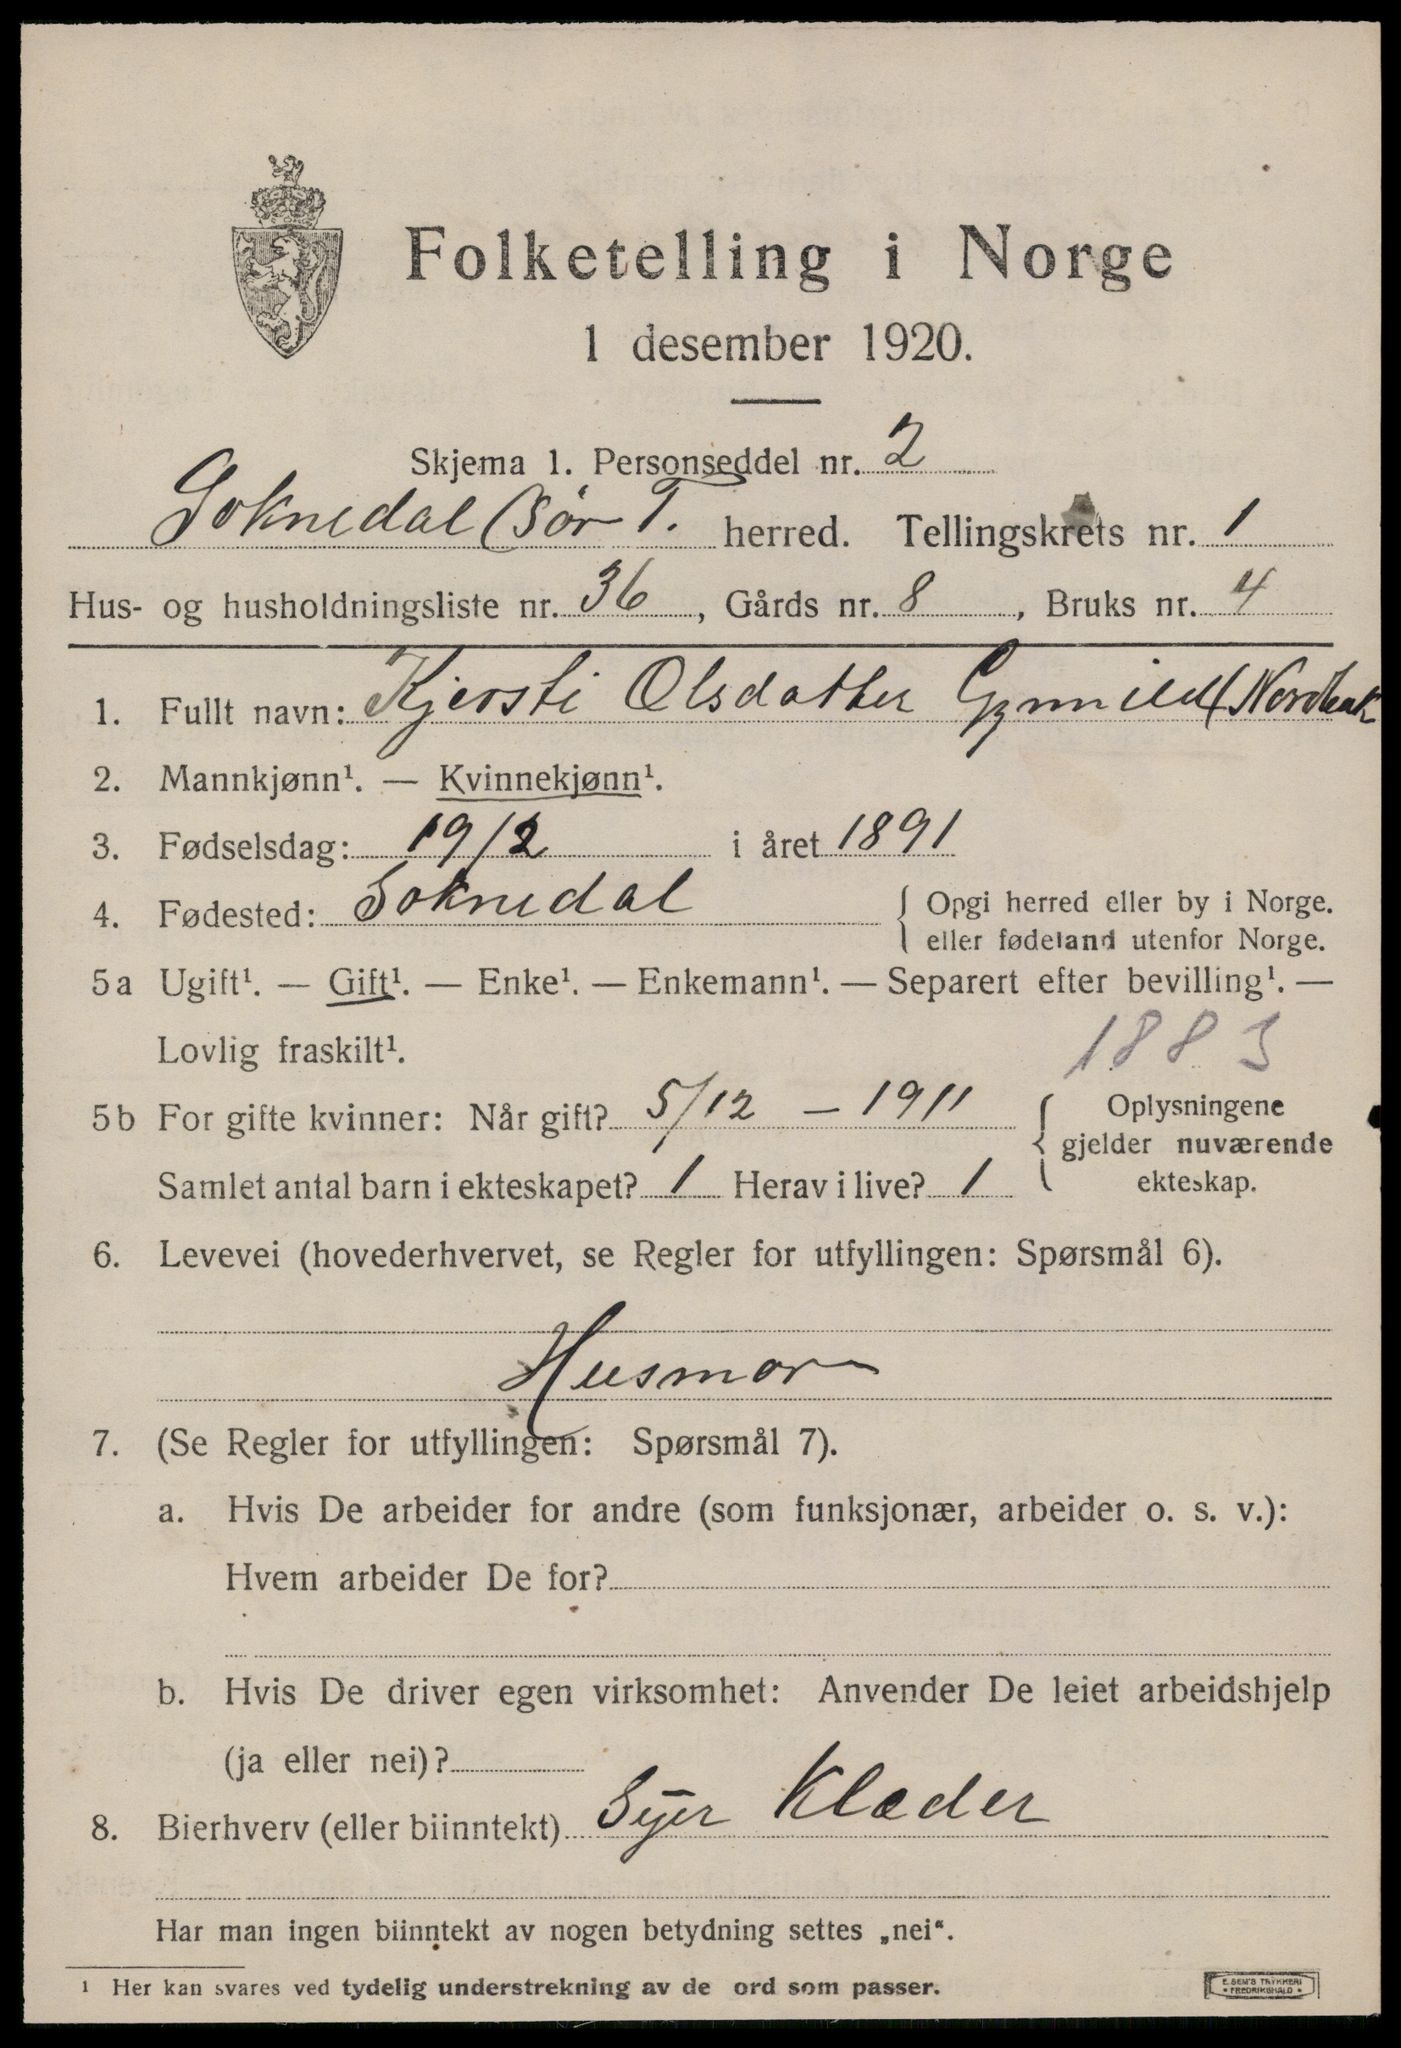 Folketelling i Norge
1 desember 1920.
Skjema 1. Personseddel nr. 2
Soknedal (Sør T. herred. Tellingskrets nr. 1
Hus- og husholdningsliste nr. 36, Gårds nr. 8, Bruks nr. 4
1. Fullt navn: Kjersti Olsdatter
2. Mannkjønn¹. — Kvinnekjønn¹.
3. Fødselsdag: 19/2 i året 1891
4. Fødested: Soknedal { Opgi herred eller by i Norge.
eller fødeland utenfor Norge.
5a Ugift¹. — Gift¹. — Enke¹. — Enkemann¹. — Separert efter bevilling¹. —
Lovlig fraskilt¹.
1883
5b For gifte kvinner: Når gift? 5/12 – 1911 { Oplysningene
gjelder nuværende
Samlet antal barn i ekteskapet? 1 Herav i live? 1 ekteskap.
6. Levevei (hovederhvervet, se Regler for utfyllingen: Spørsmål 6).
Husmor
7. (Se Regler for utfyllingen: Spørsmål 7).
a. Hvis De arbeider for andre (som funksjonær, arbeider o. s. v.):
Hvem arbeider De for?
b. Hvis De driver egen virksomhet: Anvender De leiet arbeidshjelp
(ja eller nei)?
8. Bierhverv (eller biinntekt) Syer Klæder
Har man ingen biinntekt av nogen betydning settes „nei“.
¹ Her kan svares ved tydelig understrekning av de ord som passer.
E. SEM'S TRYKKERI
• FREDRIKSHALD •